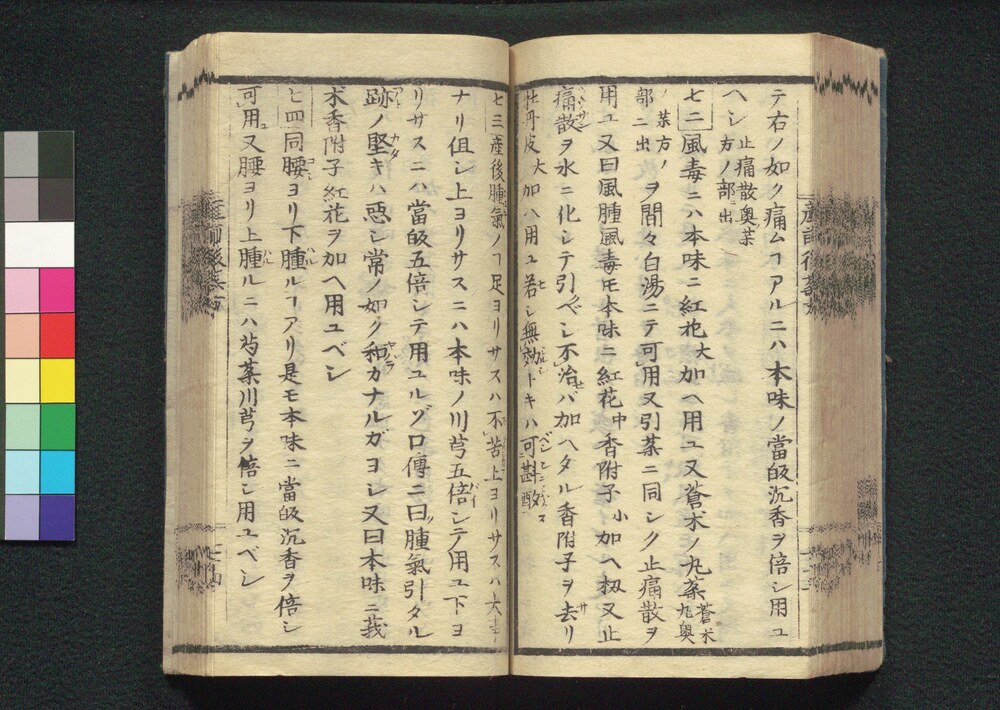 テ右ノ如ク痛ムヿアルニハ本味ノ當皈沉香ヲ倍シ用ユ
ヘシ 止痛散奥薬方ノ部ニ出
七二 風毒ニハ本味ニ紅花大加ヘ用ユ又蒼朮ノ丸薬 蒼朮丸奥
ノ薬方ノ部ニ出 ヲ間々白湯ニテ可用又引薬ニ同シク止痛散ヲ
用ユ又曰風腫風毒モ本味ニ紅花中香附子小加ヘ扨又止
痛散ヲ水ニ化シテ引ベシ不治バ加ヘタル香附子ヲ去リ
牡丹皮大加ハ用ユ若シ無効トキハ可斟酌
七三 産後腫氣ノヿ足ヨリサスハ不苦上ヨリサスハ大
ナリ但シ上ヨリサスニハ本味ノ川芎五倍シテ用ユ下ヨ
リサスニハ當皈五倍シテ用ユルゾ口傳ニ曰腫氣引タル
跡ノ堅キハ悪シ常ノ如ク和カナルガヨシ又曰本味ニ莪
朮香附子紅花ヲ加ヘ用ユベシ
七四 同腰ヨリ下腫ルヿアリ是モ本味ニ當皈沉香ヲ倍シ
可用又腰ヨリ上腫ルニハ芍薬川芎ヲ倍シ用ユベシ